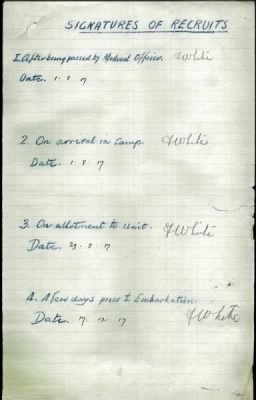 SIGNATURES OF RECRUITS
1. After being passed by Medical Officer. J White
Date. 1. 8 17
2. On arrival in Camp. J White
Date. 1. 8 17
3. On allotment to Unit. J White
Date. 23. 8 17
4. A few days prior to Embarkation. J White
Date. 17. 12. 17